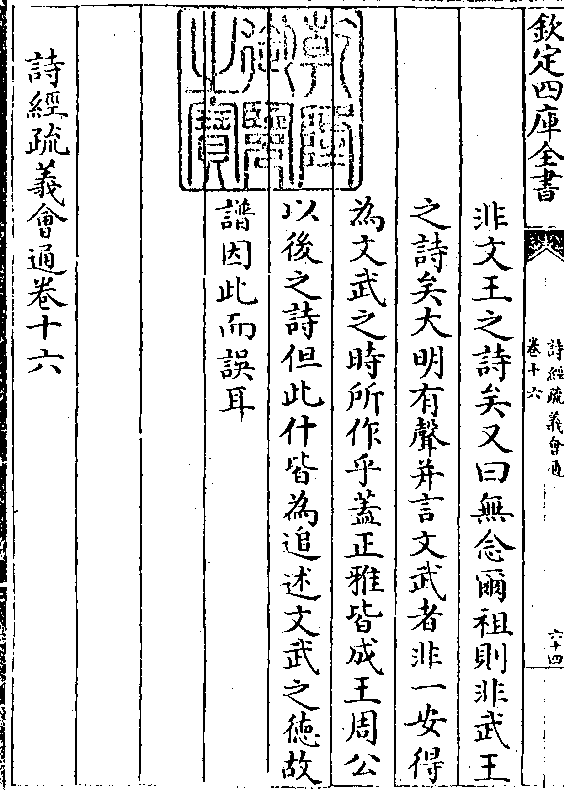 欽定四庫全書
詩經疏義會通
卷十六
六十四
非文王之詩矣又曰無念爾祖則非武王
之詩矣大明有聲并言文武者非一安得
為文武之時所作乎蓋正雅皆成王周公
以後之詩但此什皆為追述文武之徳故
譜因此而誤耳
乾隆御覽之寶
詩經疏義會通卷十六